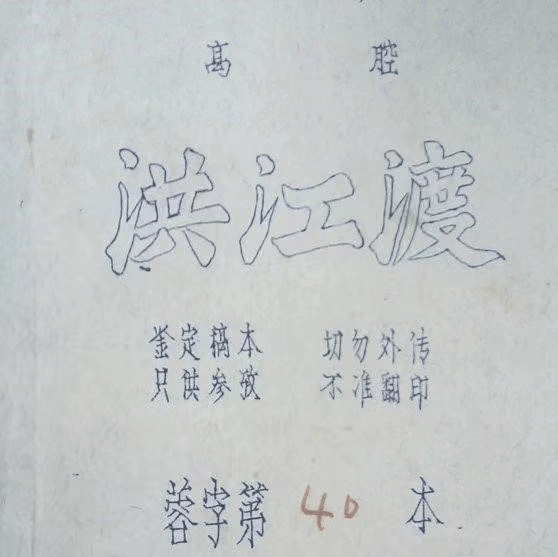 高 腔
洪江渡
鉴定稿本 切勿外传
只供参孜 不准翻印
蓉字第 40 本